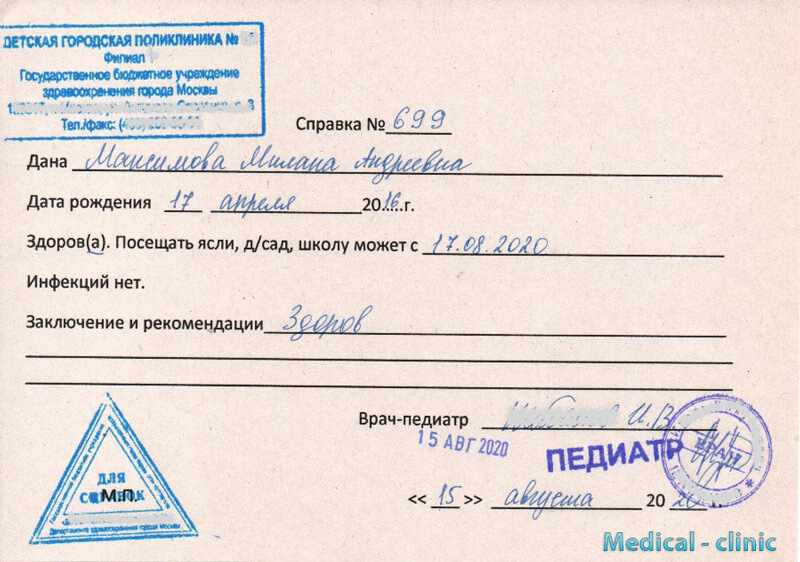 ДЕТСКАЯ ГОРОДСКАЯ ПОЛИКЛИНИКА №
Филиал
Государственное бюджетное учреждение
здравоохранения города Москвы
Тел./факс:
Справка № 699
Дана Максимова Милана Андреевна
Дата рождения 17 апреля 2016 г.
Здоров(а). Посещать ясли, д/сад, школу может с 17.08.2020
Инфекций нет.
Заключение и рекомендации Здоров
Врач-педиатр И.В.
15 АВГ 2020
ПЕДИАТР
ВРАЧ
ДЛЯ
СПРАВОК
М.П.
Департамента здравоохранения города Москвы
<< 15 >> августа 2020
Medical - clinic